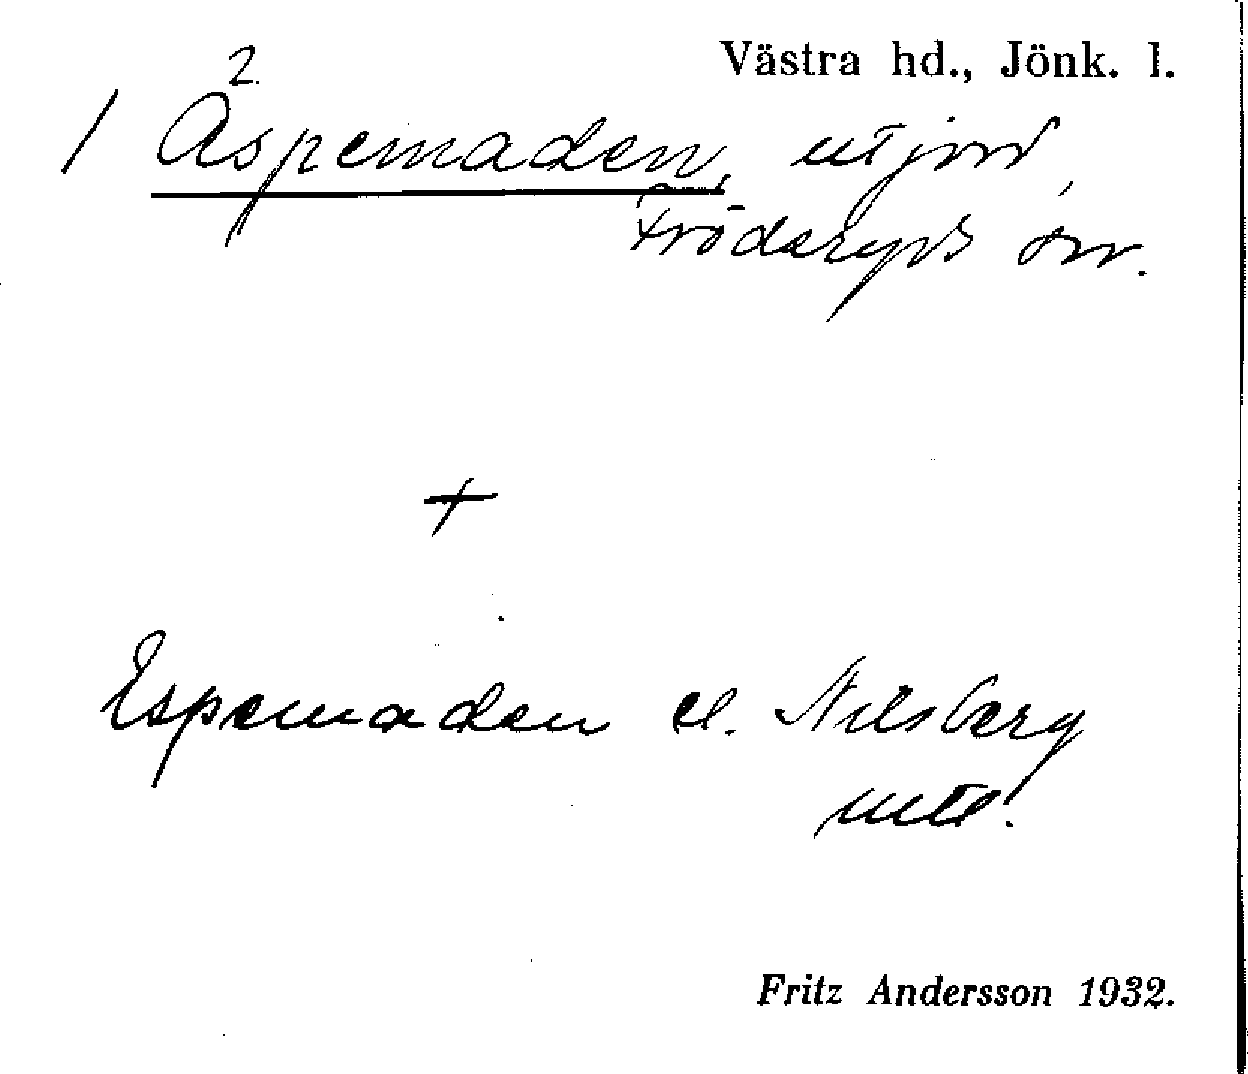 Västra hd., Jönk. l.
2
/ Aspemaden, utjord,
Fröderyds sn.
+
Espemaden el. Nilsberg
Fritz Andersson 1932.